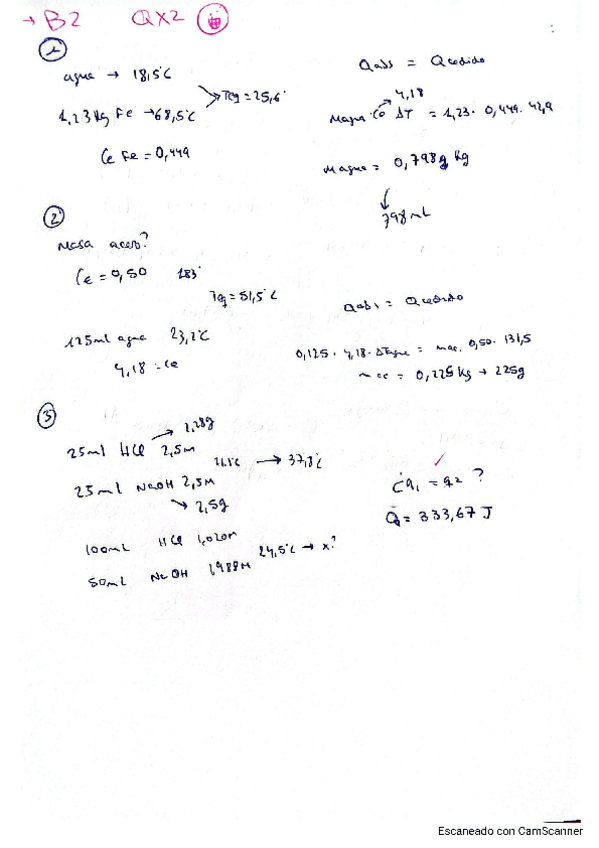 → B2 QX2
1
agua → 18,5°C
1,23 kg Fe → 68,5°C
Teq = 25,6°
Ce Fe = 0,449
Qabs = Qcedido
4,18
Magua · Ce ΔT = 1,23 · 0,449 · 42,9
Magua = 0,798g kg
798 mL
2
Masa acero?
Ce = 0,50 183°
Teq = 51,5°C
125ml agua 23,2°C
4,18 = Ce
Qabs = Qcedido
0,125 · 4,18 · ΔTagua = mac. 0,50 · 131,5
mac = 0,225 kg → 225g
3
2,28g
25ml HCl 2,5M
25ml NaOH 2,5M
→ 37,8°C
→ 2,5g
¿q₁ = q₂ ?
Q = 333,67 J
100mL HCl
50ml NaOH
24,5°C → x?
Escaneado con CamScanner